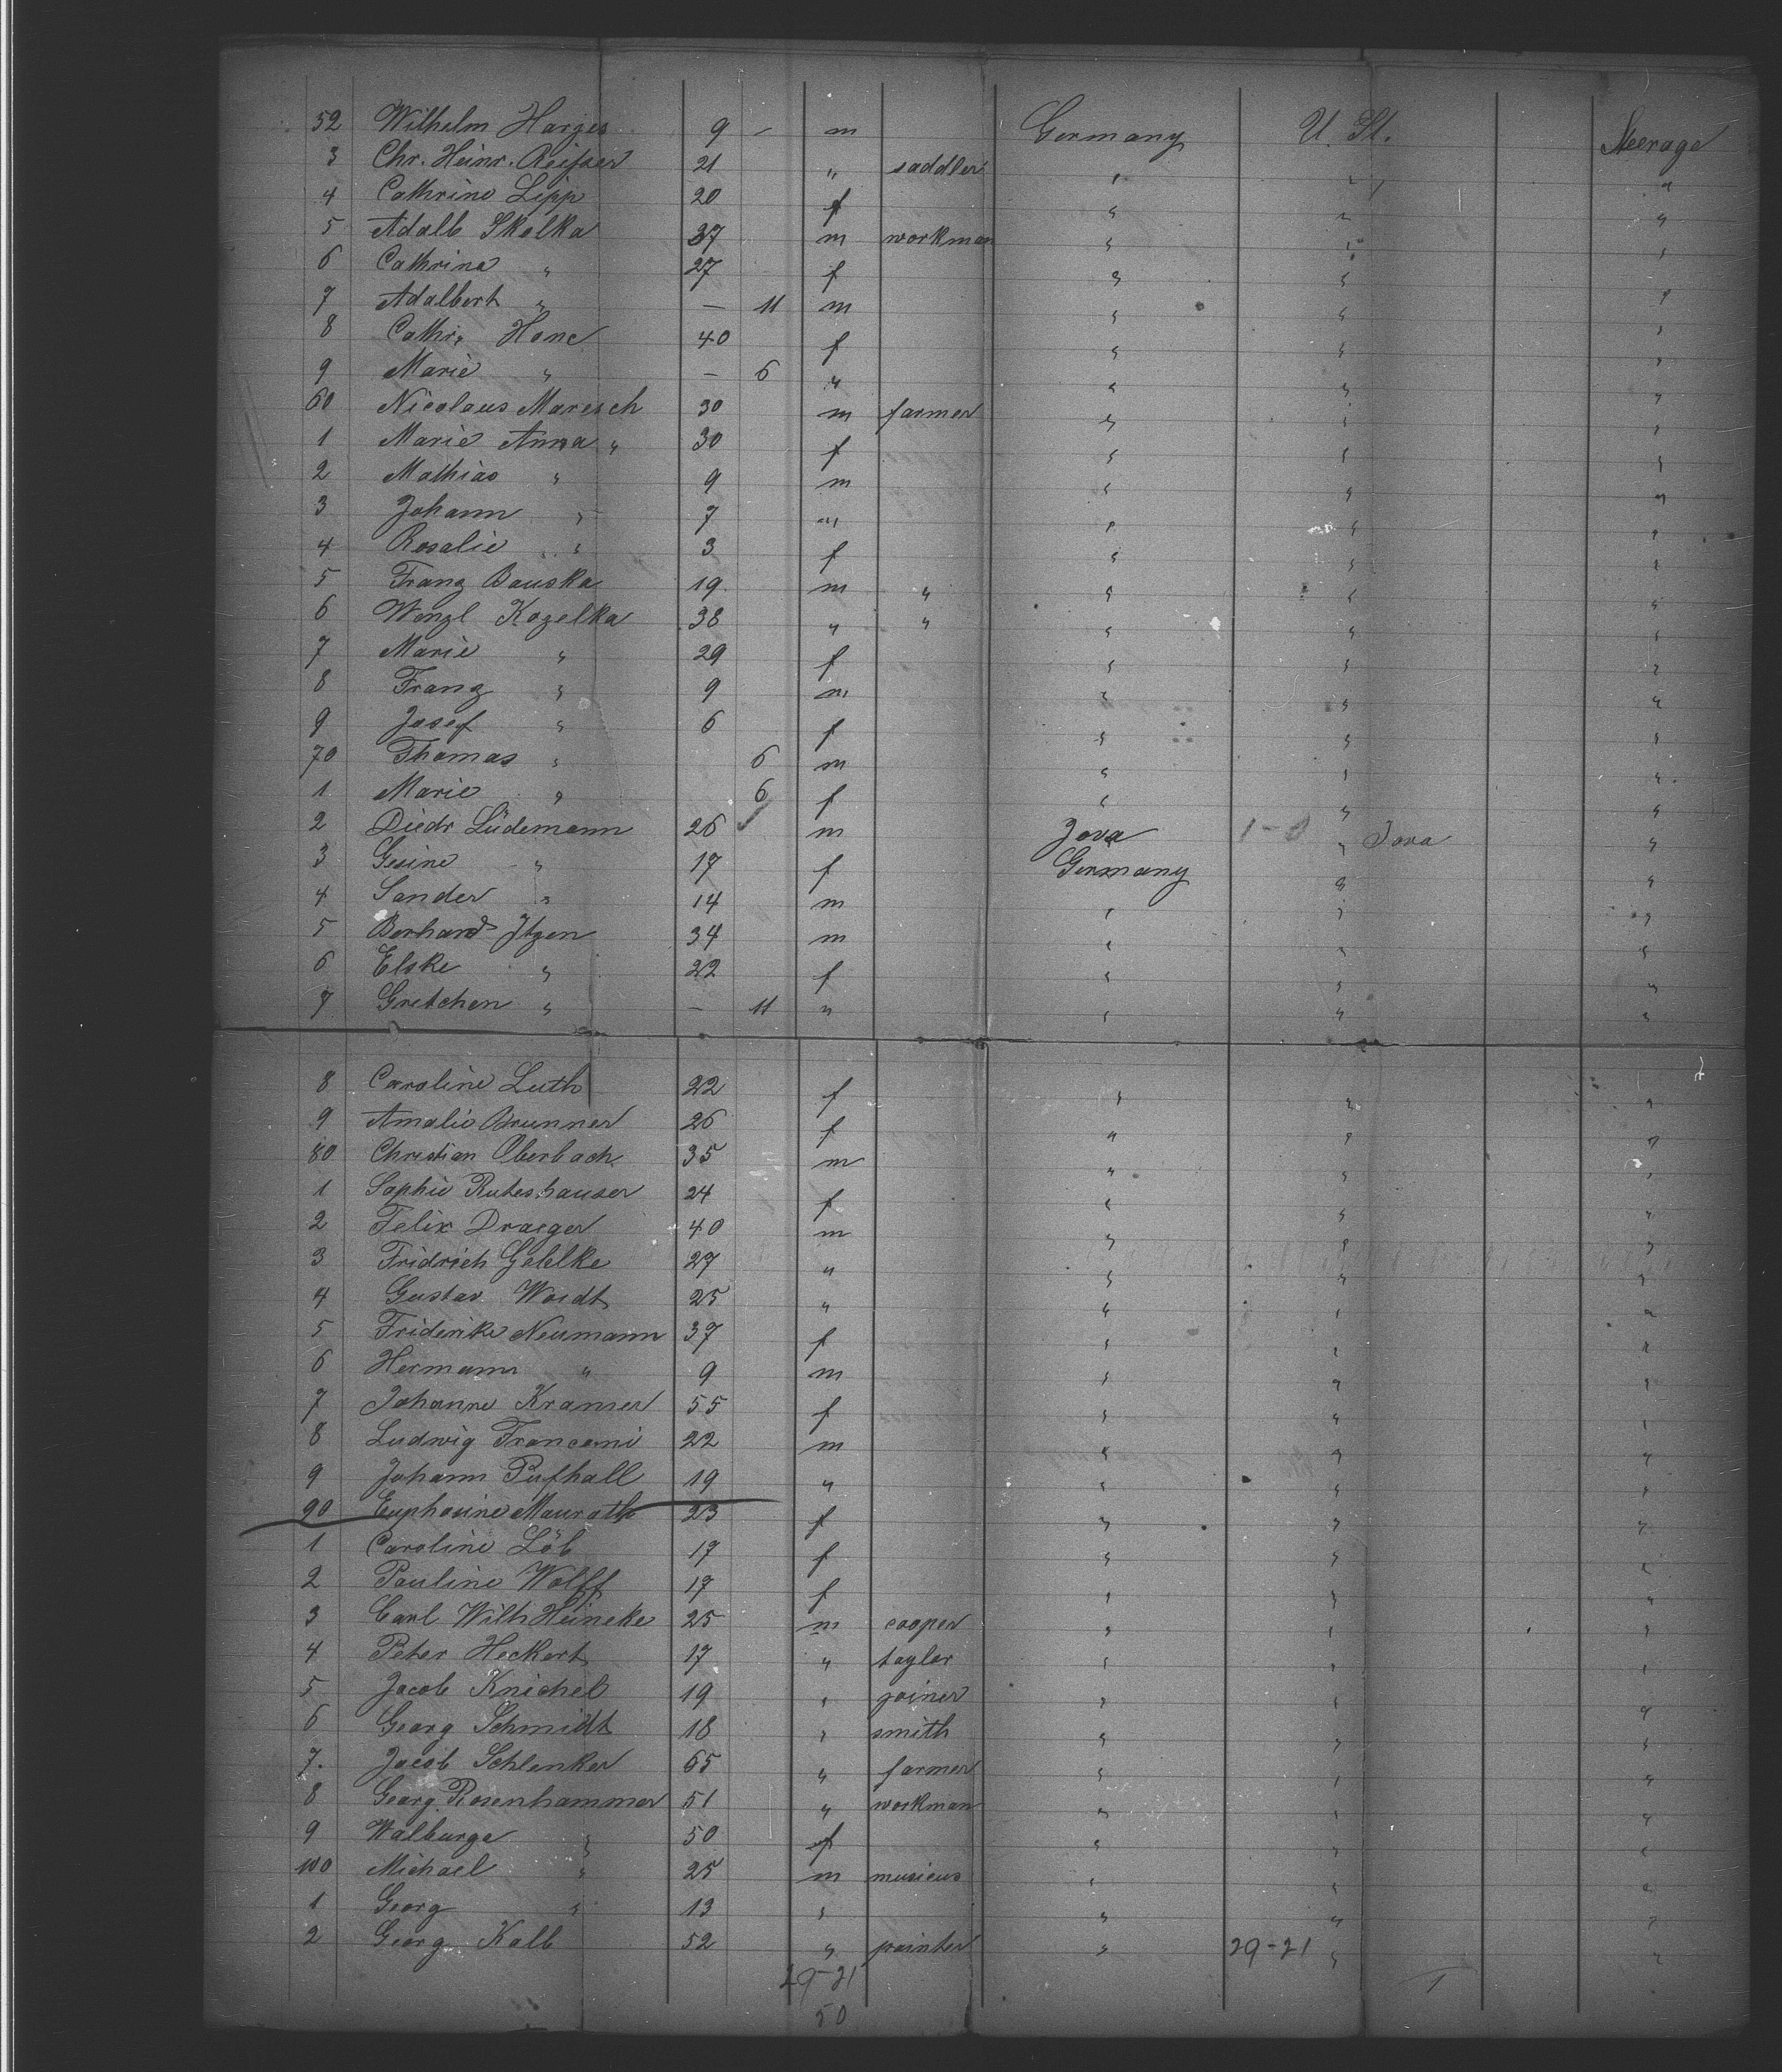 52 Wilhelm Harjes 9 - m Germany U. St. Steerage
3 Chr. Heinr. 21 " saddler " " "
4 Cathrine Lipp 20 f " " "
5 Adalb Skalka 37 m workman " " "
6 Cathrina " 27 f " " "
7 Adalbert " - 11 m " " "
8 Cathr. Hanc 40 f " " "
9 Marie " - 6 " " " "
60 Nicolaus Maresch 30 m farmer " " "
1 Marie Anna " 30 f " " "
2 Mathias " 9 m " " "
3 Johann " 7 " " " "
4 Rosalie " 3 f " " "
5 Franz Bauska 19 m " " " "
6 Wenzl Kozelka 38 " " " " "
7 Marie " 29 f " " "
8 Franz " 9 m " " "
9 Josef " 6 f " " "
70 Thomas " 6 m " " "
1 Marie " 6 f " " "
2 Diedr Lüdemann 26 m Jova 1-0 " Jova "
3 Gesine " 17 f Germany " "
4 Sander " 14 m " " "
5 Berhard Itzen 34 m " " "
6 Elske " 22 f " " "
7 Gretchen " - 11 " " " "
8 Caroline Luth 22 f " " "
9 Amalie Brunner 26 f " " "
80 Christian Oberbach 35 m " " "
1 Sophie Ruteshauser 24 f " " "
2 Felix Draeger 40 m " " "
3 Fridrich 27 " " " "
4 Gustav Woidt 25 " " " "
5 Friderike Neumann 37 f " " "
6 Hermann " 9 m " " "
7 Johanne Kramer 55 f " " "
8 Ludwig Francomi 22 m " " "
9 Johann Pufhall 19 " " " "
90 Euphosine Maurath 23 f " " "
1 Caroline Löb 17 f " " "
2 Pauline Wolff 17 f " " "
3 Carl Wilh Heineke 25 m cooper " " "
4 Peter Heckert 17 " taylor " " "
5 Jacob Knichel 19 " joiner " " "
6 Georg Schmidt 18 " smith " " "
7. Jacob Schlenker 65 " farmer " " "
8 Georg Rosenhammer 51 " workman " " "
9 Walburga " 50 f " " "
100 Michael " 25 m musicus " " "
1 Georg " 13 " " " "
2 Georg Kalb 52 " painter " 29-21 " "
29-21
50